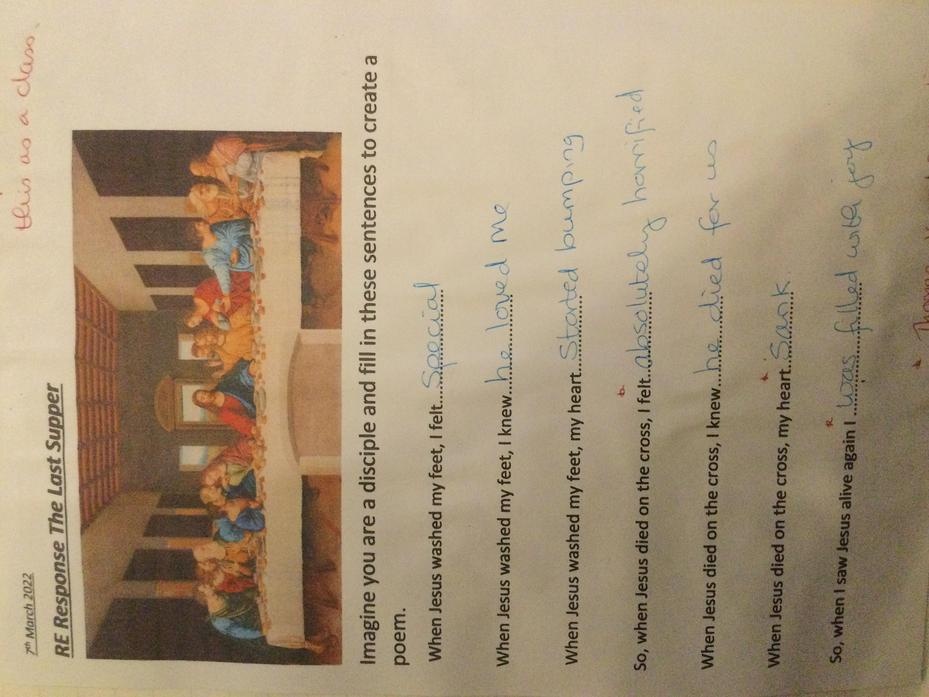 this as a class.
7th March 2022
RE Response The Last Supper
Imagine you are a disciple and fill in these sentences to create a
poem.
When Jesus washed my feet, I felt....Special
When Jesus washed my feet, I knew....he loved me
When Jesus washed my feet, my heart...Started bumping
So, when Jesus died on the cross, I felt...absolutely horrified
When Jesus died on the cross, I knew....he died for us
When Jesus died on the cross, my heart....Sank.
So, when I saw Jesus alive again I ....was filled with joy